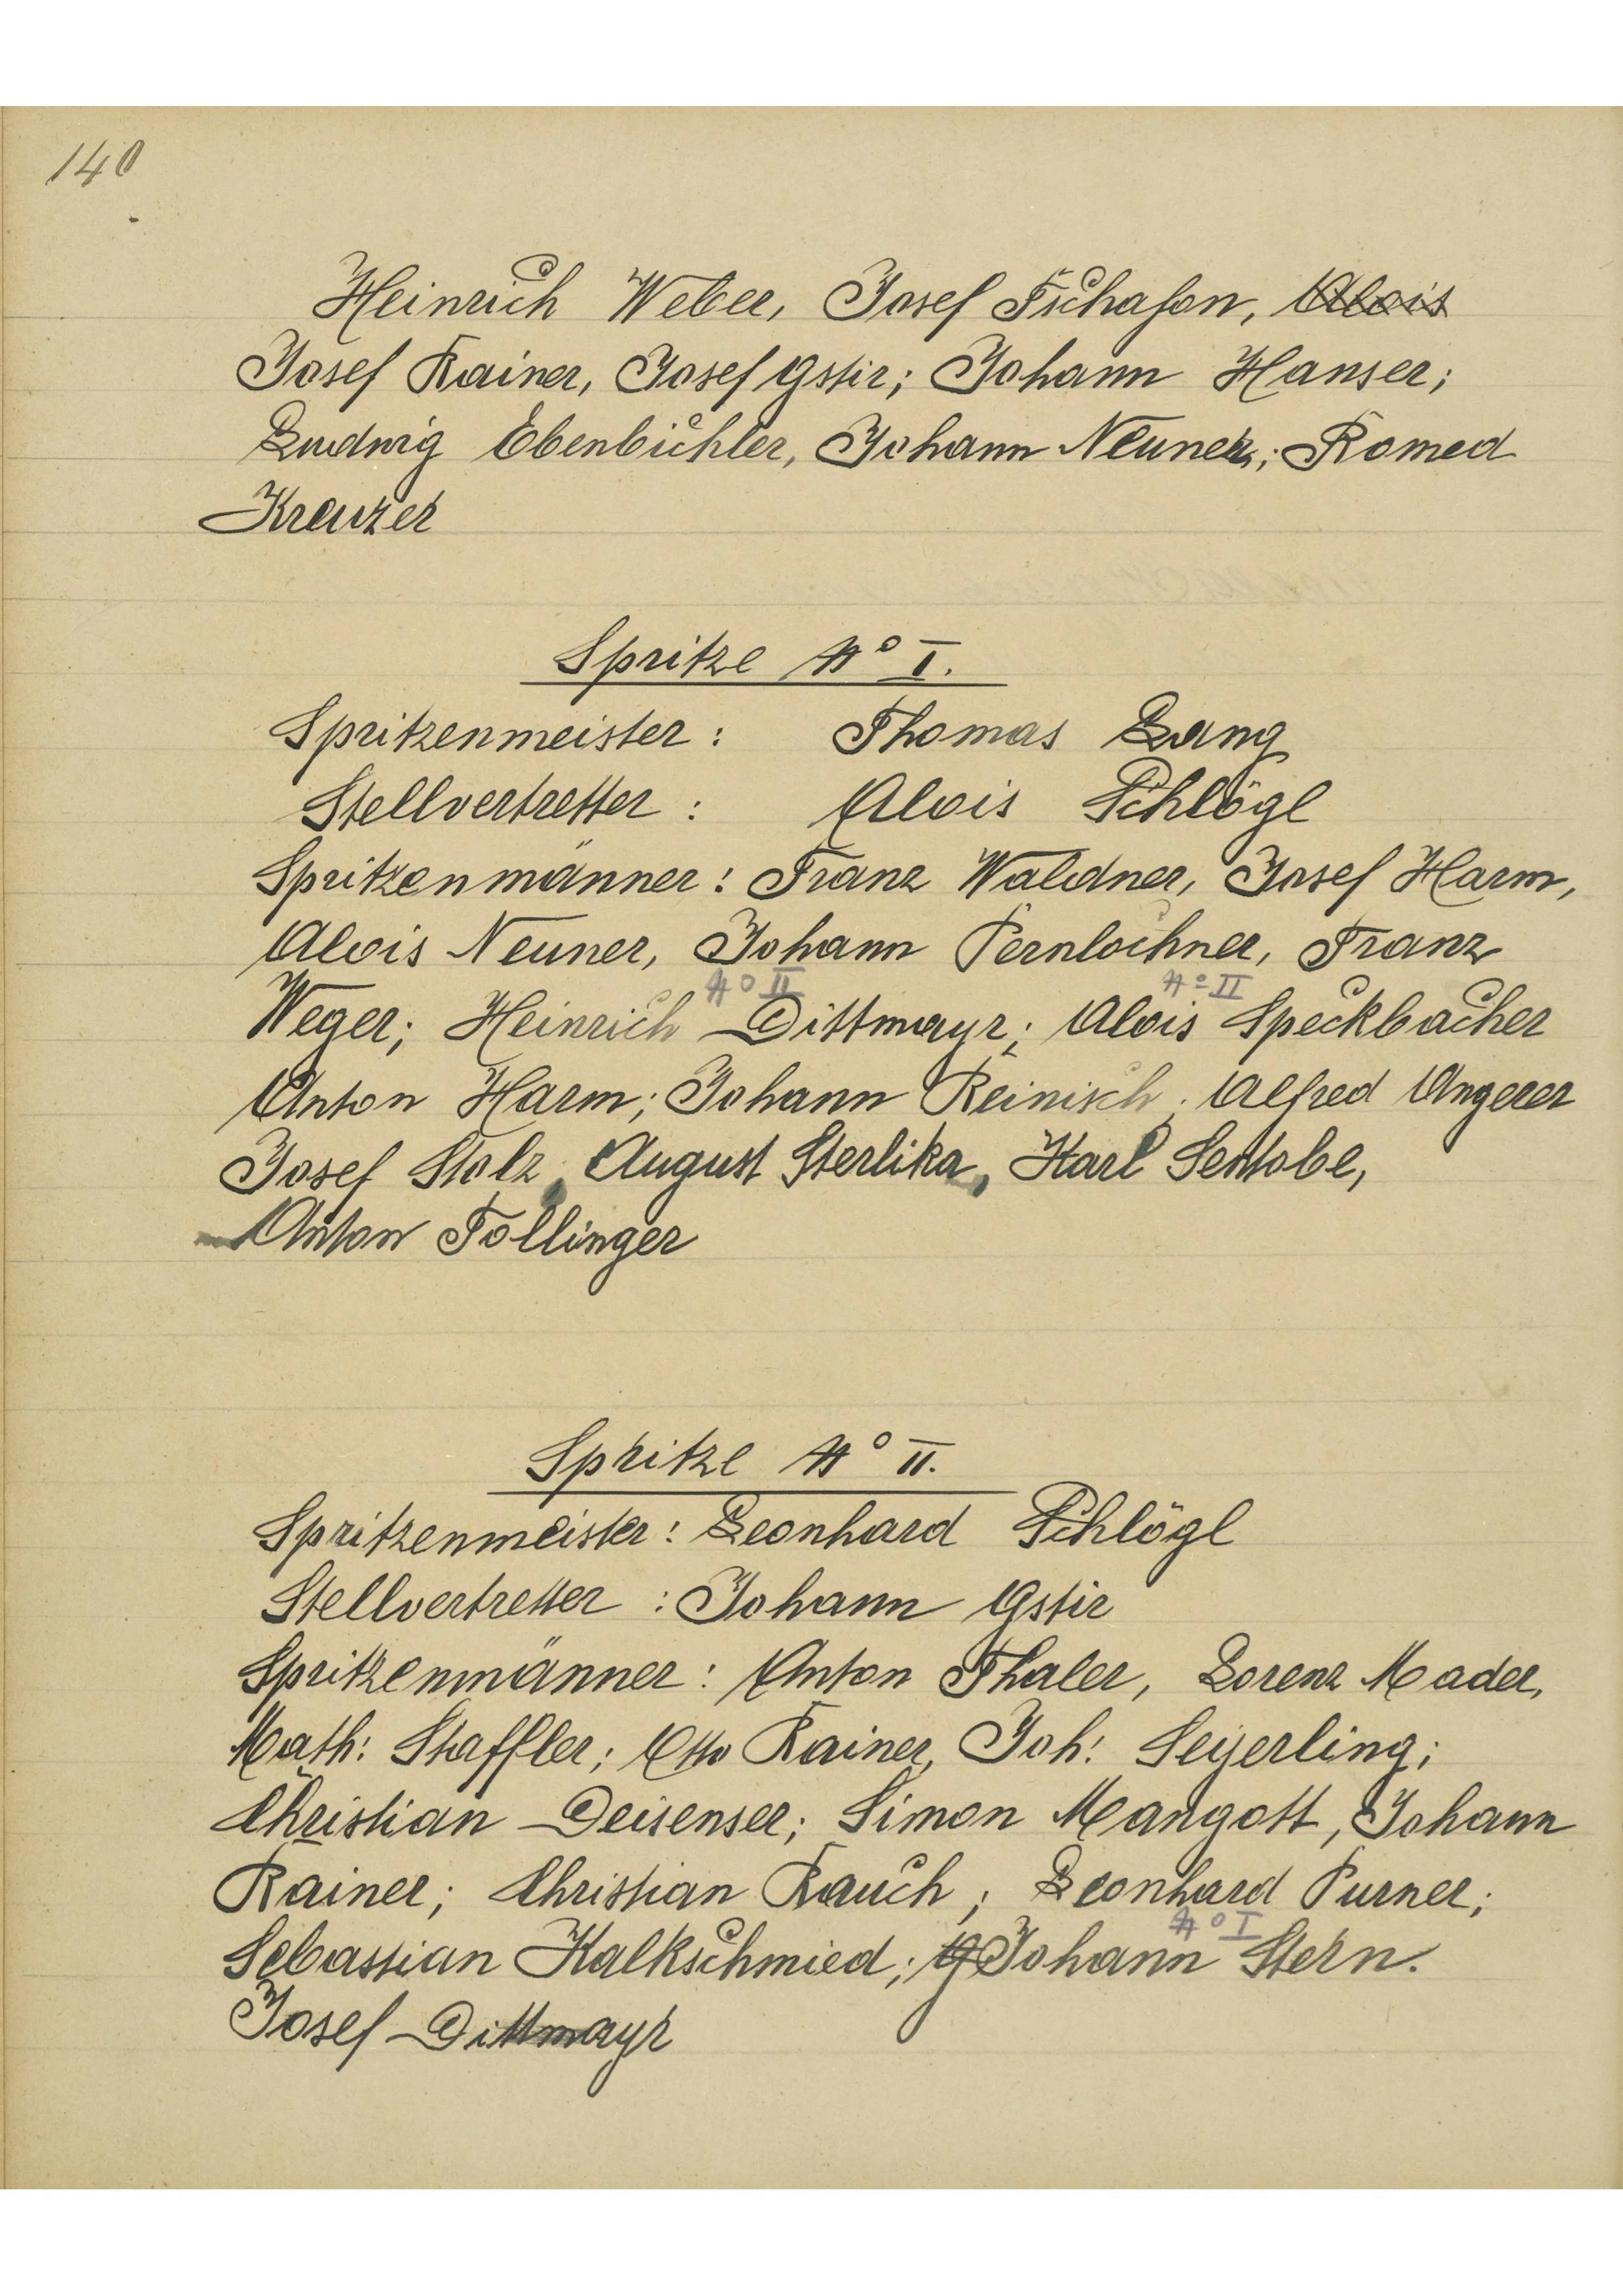 140
Heinrich Weber, Josef Tschafon, Alois
Josef Rainer, Josef Gstir; Johann Hanser;
Ludwig Ebenbichler, Johann Neuner; Romed
Kreuzer
Spritze No I.
Spritzenmeister: Thomas Lang
Stellvertretter: Alois Schlögl
Spritzenmänner: Franz Waldner, Josef Harm,
Alois Neuner, Johann Pernlochner, Franz
No II No II
Weger; Heinrich Dittmayr; Alois Speckbacher
Anton Harm; Johann Reinisch, Alfred Angerer
Josef Stolz, August Sterlika, Karl
Anton Follinger
Spritze No II.
Spritzenmeister: Leonhard Schlögl
Stellvertretter: Johann Gstir
Spritzenmänner: Anton Thaler, Lorenz Mader,
Math: Staffler; Otto Rainer, Joh: Seyerling;
Christian Deisenser; Simon Mangott, Johann
Rainer; Christian Rauch; Leonhard Purner;
No I
Sebastian Kalkschmied; Johann Stern.
Josef Dittmayr